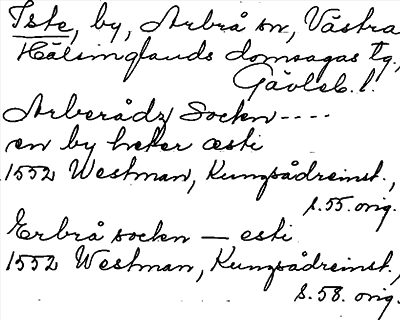 Iste, by, Arbrå sn, Västra
Hälsinglands domsagas tg.,
Gävleb. l.
Arberådz Sockn ----
en by heter æsti
1552 Westman, Kungsådreinst.,
s. 55. orig.
Erbrå sockn — esti
1552 Westman, Kungsådreinst.,
s. 58. orig.